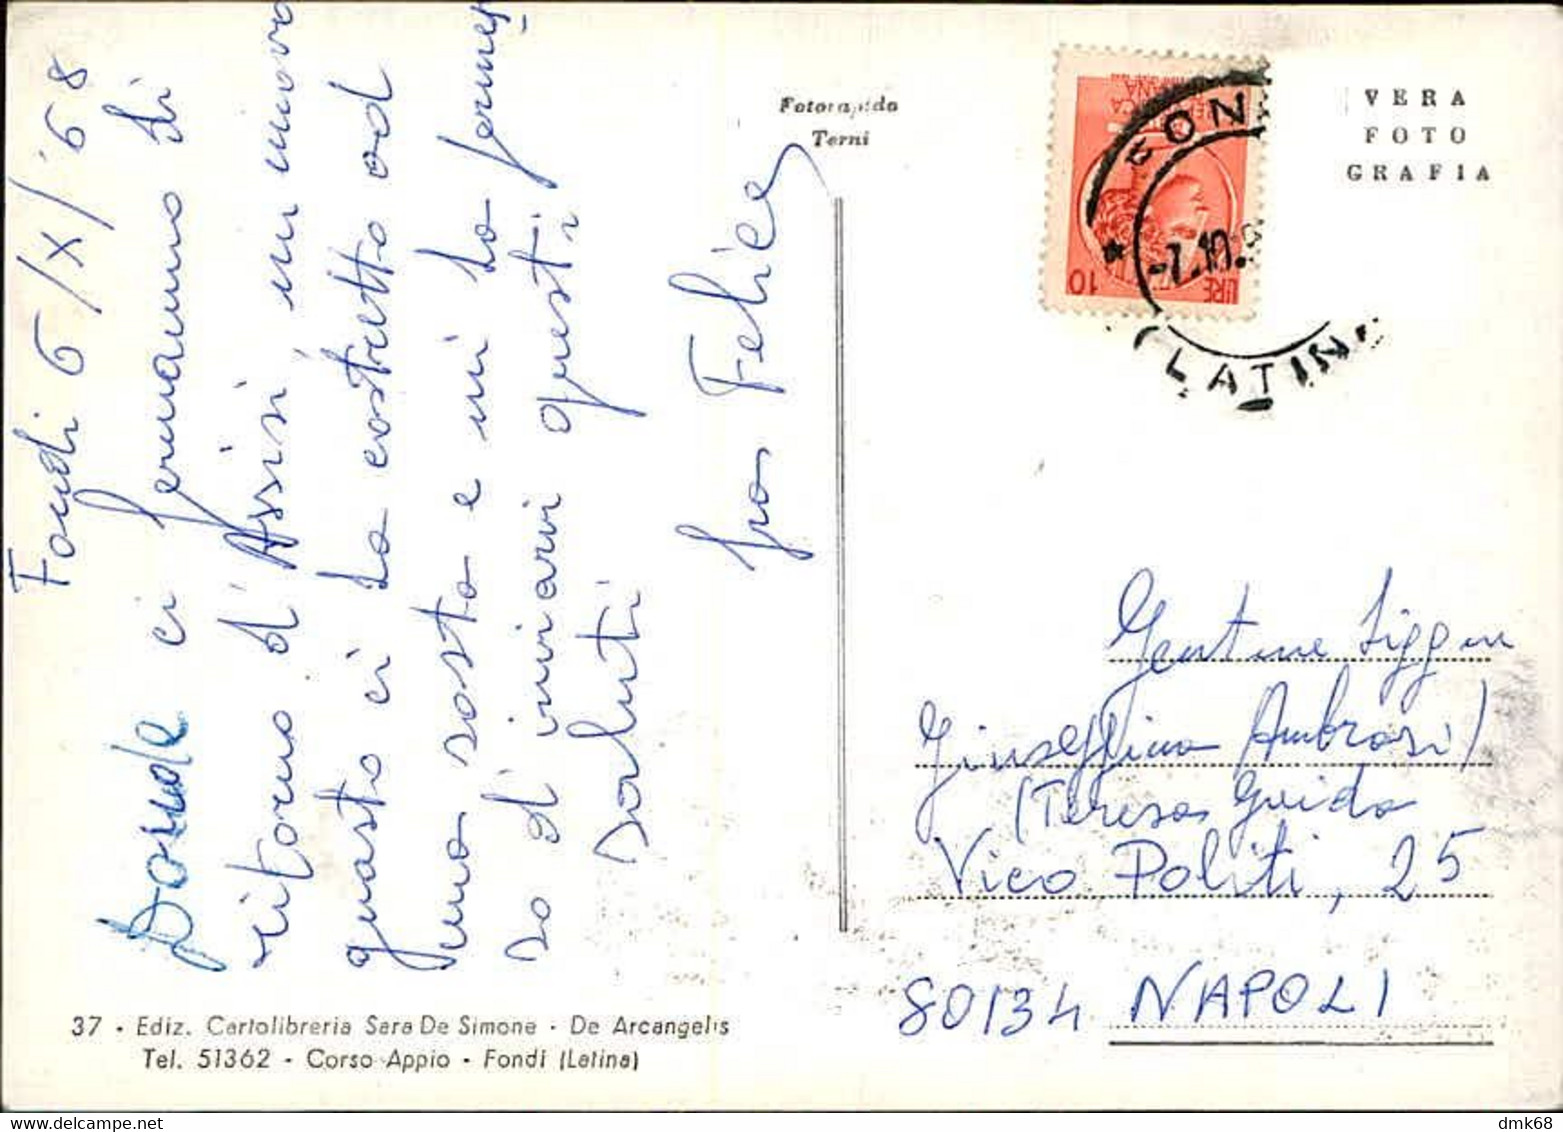 Fondi 6/X/'68
Donde ci fermiamo di
ritorno d'Assisi un nuovo
guasto ci ha costretto ad
una sosta e mi ha permes
so d'inviarvi questi
saluti
Felice
Fotorapida
Terni
VERA
FOTO
GRAFIA
REPUBBLICA
ITALIANA
LIRE 10
FON
-7.10.
(LATIN
Gentime Sigg.ne
Giuseppina Ambrosi)
(Teresa Guida
Vico Politi, 25
80134 NAPOLI
37 - Ediz. Cartolibreria Sara De Simone - De Arcangelis
Tel. 51362 - Corso Appio - Fondi (Latina)
dmk68